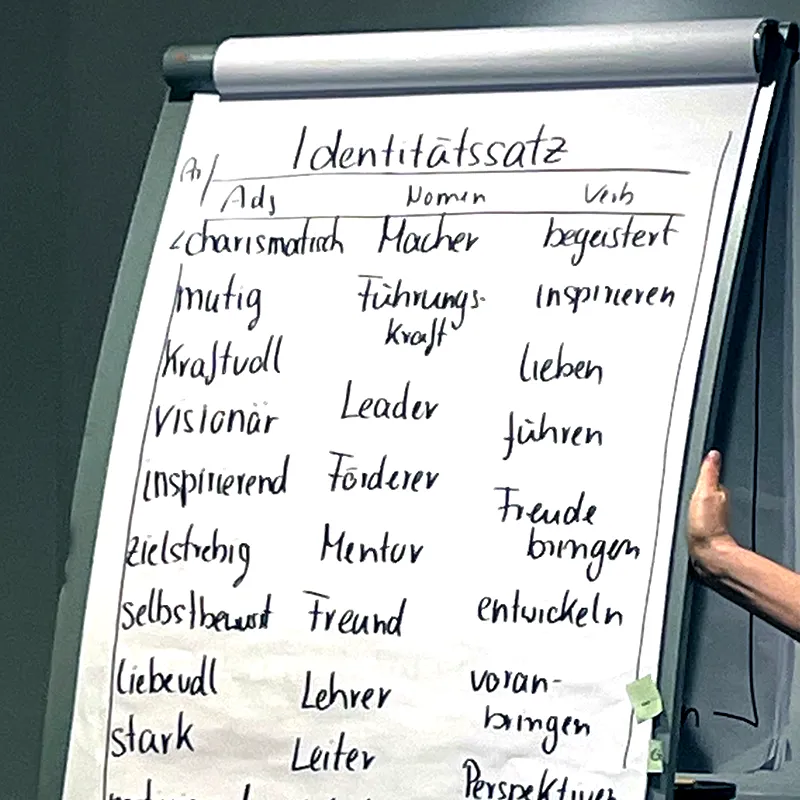 Identitätssatz
Adj Nomen Verb
charismatisch Macher begeistert
mutig Führungs- inspirieren
kraft
kraftvoll lieben
visionär Leader führen
inspirierend Förderer Freude
bringen
zielstrebig Mentor
selbstbewusst Freund entwickeln
liebevoll Lehrer voran-
bringen
stark Leiter
Perspektiven